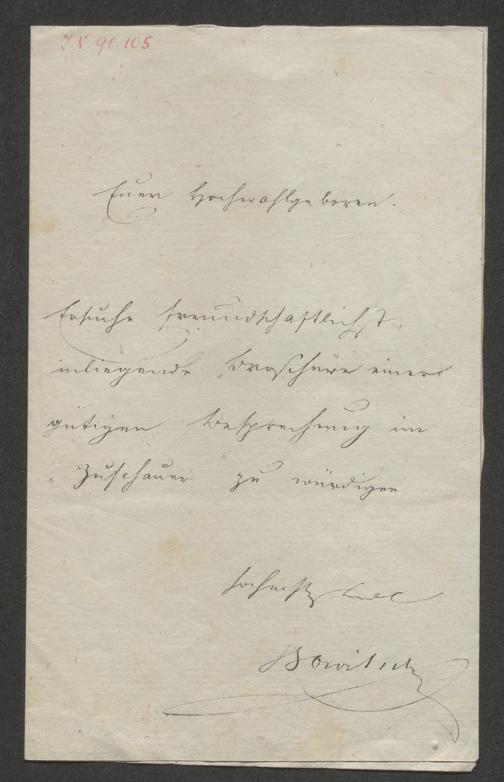 I.N. 91.105
Euer Hochwohlgeboren.
Ersuche freundschaftlichst
inliegende Broschüre einer
gütigen Besprechung im
„Zuschauer“ zu würdigen
hochachtungsvoll
Bowitsch